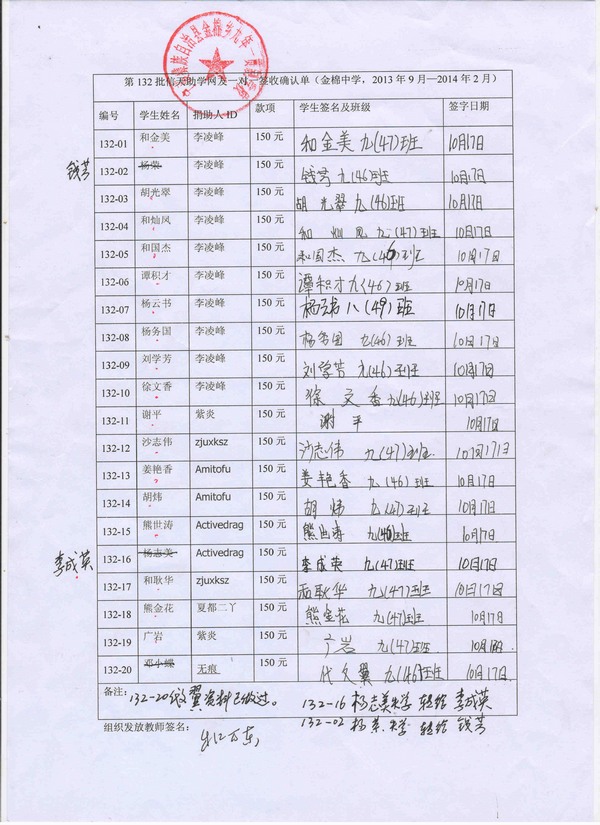 第 132 批信天助学网友一对一签收确认单（金棉中学，2013 年 9 月—2014 年 2 月）
编号 学生姓名 捐助人 ID 款项 学生签名及班级 签字日期
132-01 和金美 李凌峰 150 元 和金美 九(47)班 10月17日
钱芳 132-02 杨荣 李凌峰 150 元 钱芳 九(46)班 10月17日
132-03 胡光翠 李凌峰 150 元 胡光翠 九(46)班 10月17日
132-04 和灿凤 李凌峰 150 元 和灿凤 九(47)班 10月17日
132-05 和国杰 李凌峰 150 元 和国杰 九(46)班 10月17日
132-06 谭积才 李凌峰 150 元 谭积才 九(46)班 10月17日
132-07 杨云书 李凌峰 150 元 杨云书 八(49)班 10月17日
132-08 杨务国 李凌峰 150 元 杨务国 九(46)班 10月17日
132-09 刘学芳 李凌峰 150 元 刘学芳 九(46)班 10月17日
132-10 徐文香 李凌峰 150 元 徐文香 九(46)班 10月17日
132-11 谢平 紫炎 150 元 谢平 10月17日
132-12 沙志伟 zjuxksz 150 元 沙志伟 九(47)班 10月17日
132-13 姜艳香 Amitofu 150 元 姜艳香 九(46)班 10月17日
132-14 胡炜 Amitofu 150 元 胡炜 九(47)班 10月17日
132-15 熊世涛 Activedrag 150 元 熊世涛 九(46)班 10月17日
李成英 132-16 杨志美 Activedrag 150 元 李成英 九(47)班 10月17日
132-17 和耿华 zjuxksz 150 元 和耿华 九(47)班 10月17日
132-18 熊金花 夏都二丫 150 元 熊金花 九(47)班 10月17日
132-19 广岩 紫炎 150 元 广岩 九(47)班
132-20 邓小蝶 无痕 150 元 代文翼 九(46)班 10月17日
备注：
132-20 翼资料已做过。 132-16 杨志美失学 转给 李成英
132-02 杨荣 失学 转给 钱芳
组织发放教师签名：